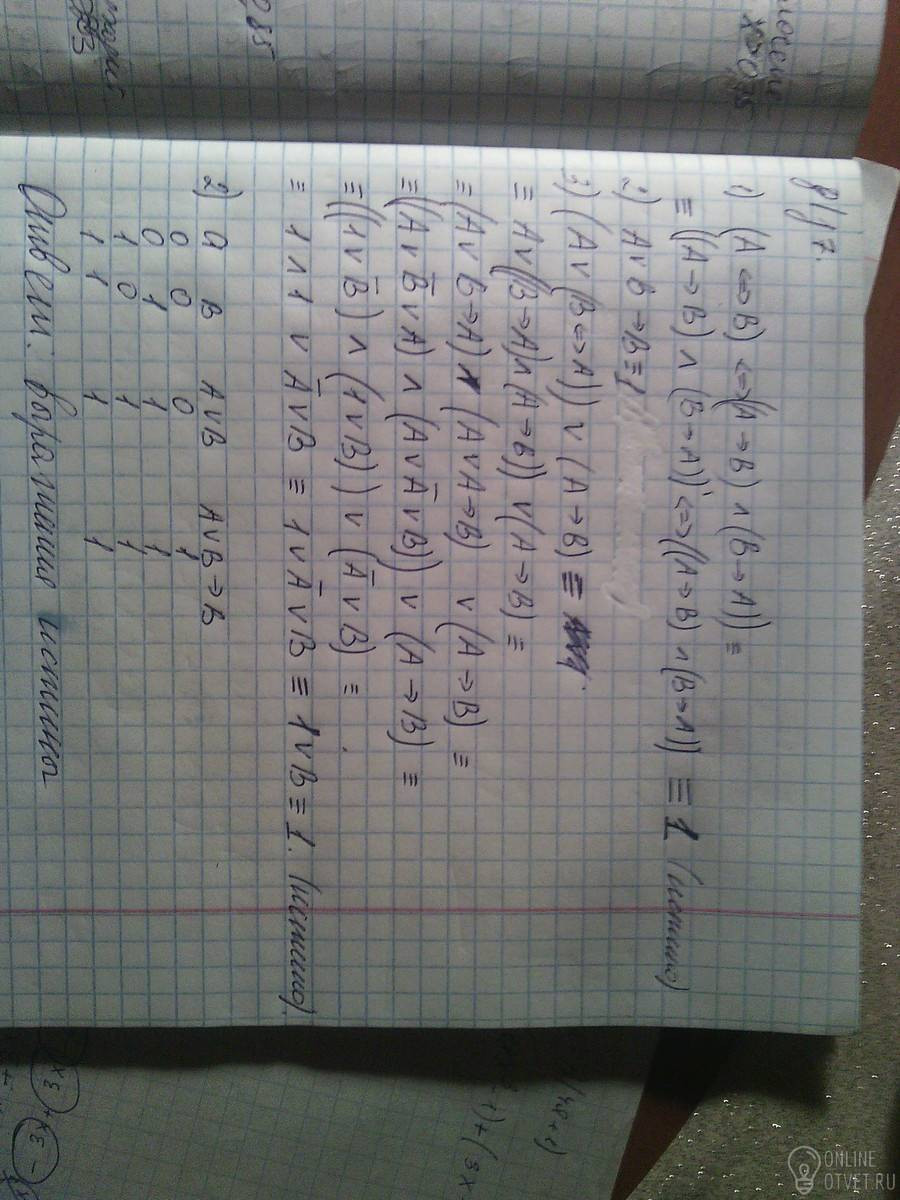 1) (A ⇔ B) ⇔ ((A → B) ∧ (B → A)) ≡
≡ ((A → B) ∧ (B → A)) ⇔ ((A → B) ∧ (B → A)) ≡ 1 (истина)
2) A ∨ B → B ≡ 1
3) (A ∨ (B ⇔ A)) ∨ (A → B) ≡
≡ A ∨ ((B → A) ∧ (A → B)) ∨ (A → B) ≡
≡ (A ∨ B → A) ∧ (A ∨ A → B) ∨ (A → B) ≡
≡ ((A ∨ B̅ ∨ A) ∧ (A ∨ A̅ ∨ B)) ∨ (A → B) ≡
≡ ((1 ∨ B̅) ∧ (1 ∨ B)) ∨ (A̅ ∨ B) ≡
≡ 1 ∧ 1 ∨ A̅ ∨ B ≡ 1 ∨ A̅ ∨ B ≡ 1 ∨ B ≡ 1. (истина).
2) a B A∨B A∨B → B
0 0 0 1
0 1 1 1
1 0 1 1
1 1 1 1
Ответ: истина
ONLINE
OTVET.RU